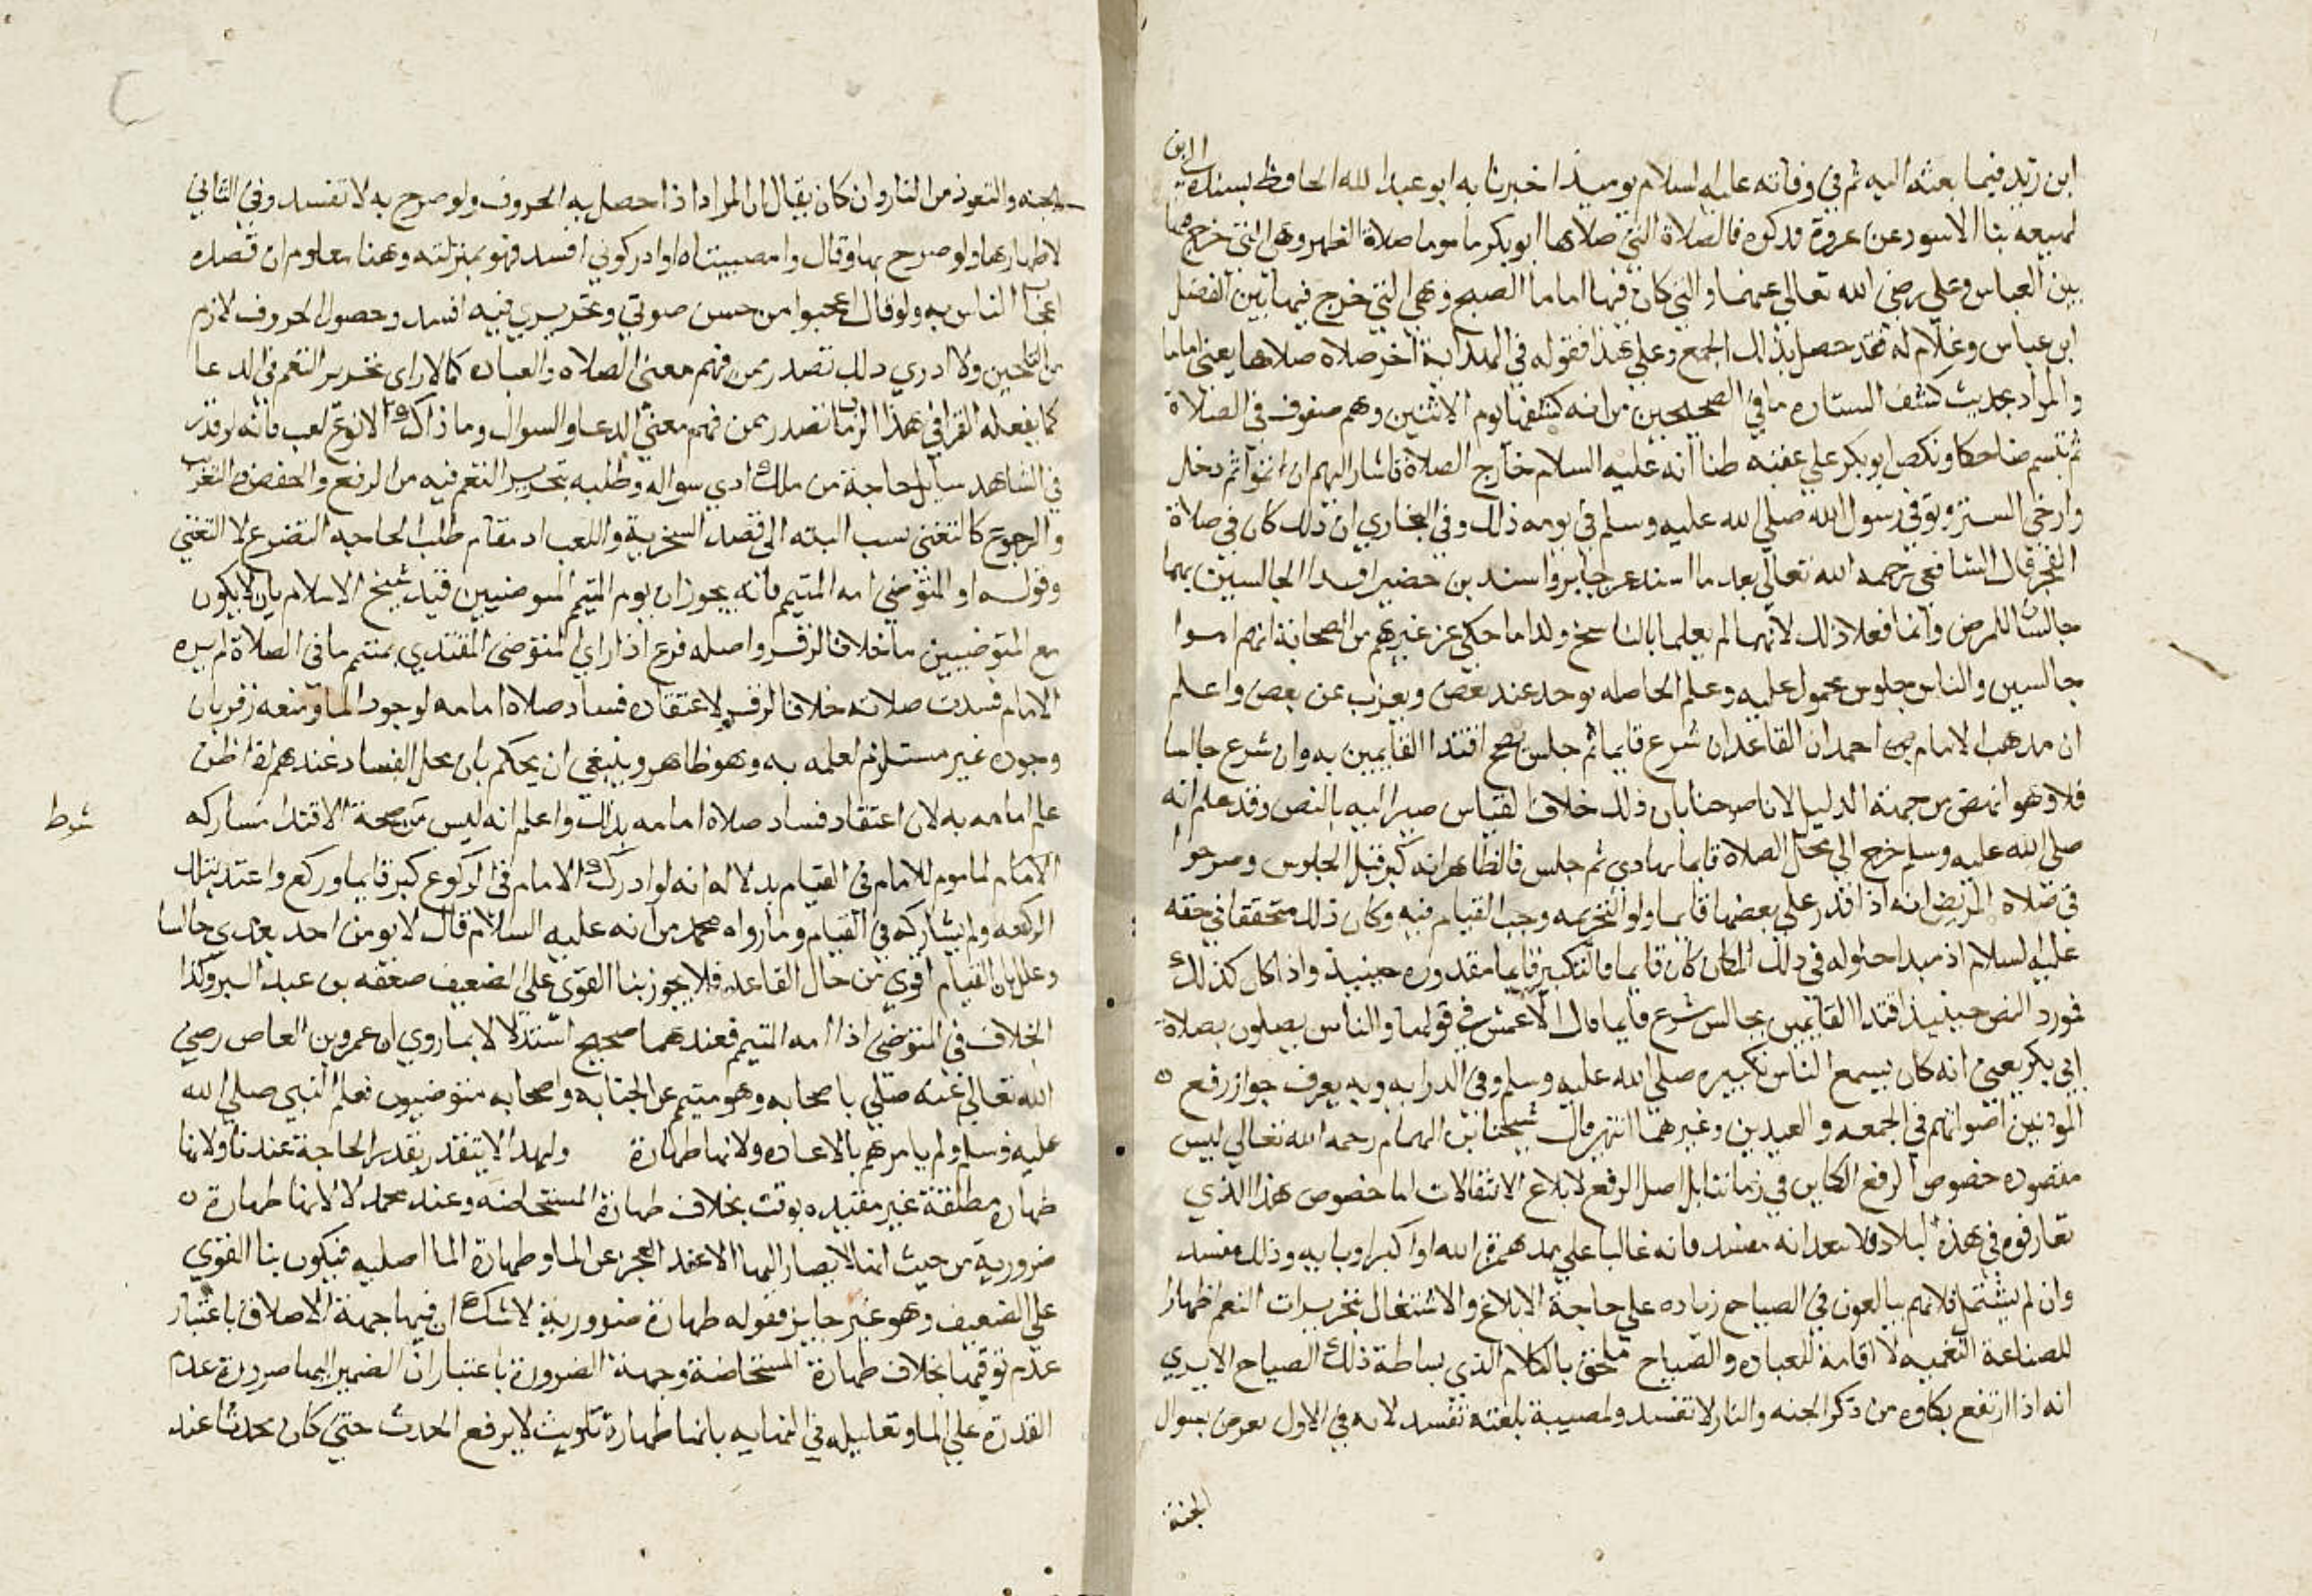 ابن زيد فيما بعثه اليه ثم في وفاته عليه السلام يوميذ اخبرنا به ابو عبد الله الحافظ بسنده الي ابن
لهيعه ثنا الاسود عن عروة فذكره فالصلاة التي صلاها ابو بكر ماموما صلاة الظهر وهي التي خرج فيها
بين العباس وعلي رضي الله تعالي عنهما والتي كان فيها اماما الصبح وهي التي خرج فيها بين الفضل
ابن عباس وغلام له فقد حصل بذلك الجمع وعلي هذا فقوله في الهداية اخر صلاه صلاها يعني اماما
والمراد بحديث كشف الستاره ما في الصحيحين من انه كشفها يوم الاثنين وهم صفوف في الصلاة
ثم تبسم ضاحكا ونكص ابو بكر علي عقبه ظنا انه عليه السلام خارج الصلاة فاشار اليهم ان اتموا ثم دخل
وارخي الستر وتوفي رسول الله صلي الله عليه وسلم في يومه ذلك وفي البخاري ان ذلك كان في صلاة
الفجر قال الشافعي رحمه الله تعالي بعد ما اسند عن جابر واسيد بن حضير اقتدا الجالسين بهما
جالسان للمرض وانما فعلا ذلك لانهما لم يعلما بالناسخ ولذا ما حكي عن غيرهم من الصحابة انهم اموا
جالسين والناس جلوس محمول عليه وعلم الخاصه يوجد عند بعض ويعزب عن بعض واعلم
ان مذهب الامام احمد ان القاعد ان شرع قايما ثم جلس صح اقتدا القايمين به وان شرع جالسا
فلا وهو انهض من جهة الدليل لانا صرحنا بان ذلك خلاف القياس صير اليه بالنص وقد علم انه
صلي الله عليه وسلم خرج الي محل الصلاة قايما يهادي ثم جلس فالظاهر انه كبر قبل الجلوس وصرحوا
في صلاة المريض انه اذا قدر علي بعضها قايما ولو التحريمه وجب القيام فيه وكان ذلك متحققا في حقه
عليه السلام اذ مبدا حلوله في ذلك المكان كان قايما فالتكبير قايما مقدوره حينيذ واذا كان كذلك
فورد النص حينيذ اقتدا القايمين بجالس شرع قايما قال الاعمش في قولها والناس يصلون بصلاة
ابي بكر يعني انه كان يسمع الناس تكبيره صلي الله عليه وسلم وفي الدرايه وبه يعرف جواز رفع ٥
الموذنين اصواتهم في الجمعه والعيدين وغيرهما انتهي قال شيخنا ابن الهمام رحمه الله تعالي ليس
مقصوده خصوص الرفع الكاين في زماننا بل اصل الرفع لابلاغ الانتقالات اما خصوص هذا الذي
تعارفوه في هذه البلاد فلا يبعد انه مفسد فانه غالبا علي مد همزة الله او اكبر او بايه وذلك مفسد
وان لم يشتمل فلانهم يبالغون في الصياح زياده علي حاجة الابلاغ والاشتغال بتحريرات النغم اظهارا
للصناعة النغميه لا اقامة للعباده والصياح ملحق بالكلام الذي بساطة ذلك الصياح الا يري
انه اذا ارتفع بكاوه من ذكر الجنه والنار لا تفسد ولمصيبة بلغته تفسد لانه في الاول تعرض بسوال
الجنة
الجنه والتعوذ من النار وان كان يقال ان المراد اذا حصل به الحروف ولو صرح به لا تفسد وفي الثاني
لاظهارها ولو صرح بها وقال وامصيبتاه او ادركوني افسد فهو بمنزلته وهنا معلوم ان قصده
اعجاب الناس به ولو قال اعجبوا من حسن صوتي وتحريري فيه افسد وحصول الحروف لازم
من التلحين ولا ادري ذلك تصدر ممن فهم معني الصلاه والعباده كما لا اري تحرير النغم في الدعا
كما يفعله القرا في هذا الزمان تصدر ممن فهم معني الدعا والسوال وما ذاك الا نوع لعب فانه لو قدر
في الشاهد سايل حاجة من ملك ادي سواله وطلبه بتحرير النغم فيه من الرفع والخفض والتغريب
والرجوع كالتغني نسب البته الي قصد السخرية واللعب اذ مقام طلب الحاجه التضرع لا التغني
وقوله او المتوضي امه المتيمم فانه يجوز ان يوم المتيمم المتوضيين قيد شيخ الاسلام بان لا يكون
مع المتوضيين ما خلافا لزفر واصله فرع اذا راي المتوضي المقتدي بمتيمم ما في الصلاة لم يره
الامام فسدت صلاته خلافا لزفر لاعتقاده فساد صلاة امامه لوجود الما ومنعه زفر بان
وجوده غير مستلزم لعلمه به وهو ظاهر وينبغي ان يحكم بان محل الفساد عندهم اذا ظن
علم امامه به لان اعتقاد فساد صلاه امامه بذلك واعلم انه ليس من صحة الاقتدا مشاركه
شرط
الامام لماموم للامام في القيام بدلاله انه لو ادرك الامام في الركوع كبر قايما وركع واعتد بتلك
الركعه ولم يشاركه في القيام وما رواه محمد من انه عليه السلام قال لا يومن احد بعدي جالسا
وعلل بان القيام اقوي من حال القاعد فلا يجوز بنا القوي علي الضعيف ضعفه بن عبد البر وكذا
الخلاف في المتوضي اذا امه المتيمم فعندهما صحيح استدلالا بما روي ان عمرو بن العاص رضي
الله تعالي عنه صلي باصحابه وهو متيمم عن الجنابه واصحابه متوضيون فعلم النبي صلي الله
عليه وسلم ولم يامرهم بالاعاده ولانها طهارة ولهذا لا يتقدر بقدر الحاجة عندنا ولانها
طهارة مطلقة غير مقيده بوقت بخلاف طهارة المستحاضه وعند محمد لا لانها طهارة ٥
ضرورية من حيث انها لا يصار اليها الا عند العجز عن الما وطهارة الما اصليه فيكون بنا القوي
علي الضعيف وهو غير جايز فقوله طهارة ضرورية لا شك ان فيها جهة الاطلاق باعتبار
عدم توقيتها بخلاف طهارة المستحاضة وجهة الضرورة باعتبار ان المصير اليها ضرورة عدم
القدرة علي الما وتعليله في النهايه بانها طهارة تلويث لا يرفع الحدث حتي كان محدثا عند